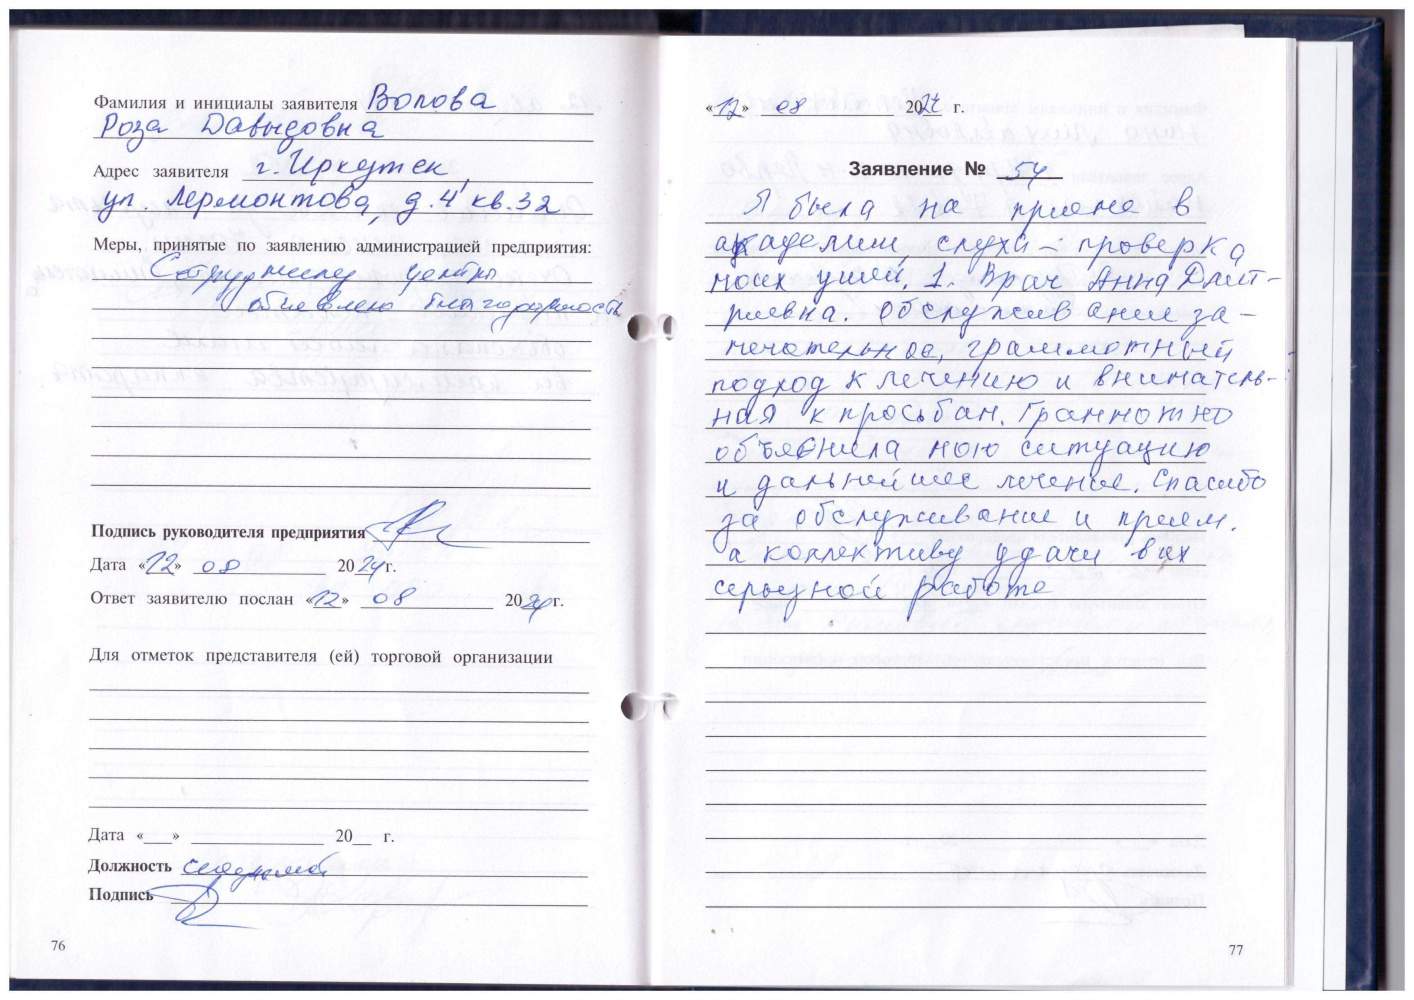 Фамилия и инициалы заявителя Волова
Роза Давыдовна
Адрес заявителя г. Иркутск,
ул. Лермонтова, д.4 кв.32
Меры, принятые по заявлению администрацией предприятия:
Сотруднице центра
объявлено благодарность
Подпись руководителя предприятия
Дата «12» 08 2024г.
Ответ заявителю послан «12» 08 2024г.
Для отметок представителя (ей) торговой организации
Дата «___» 20__ г.
Должность
Подпись
76
«12» 08 2024 г.
Заявление № 54
Я была на приеме в
академии слуха – проверка
моих ушей. 1. Врач Анна Дмит-
риевна. Обслуживание за-
мечательное, грамотный
подход к лечению и вниматель-
ная к просьбам. Грамотно
объяснила мою ситуацию
и дальнейшее лечение. Спасибо
за обслуживание и прием.
а коллективу удачи в их
серьезной работе
77